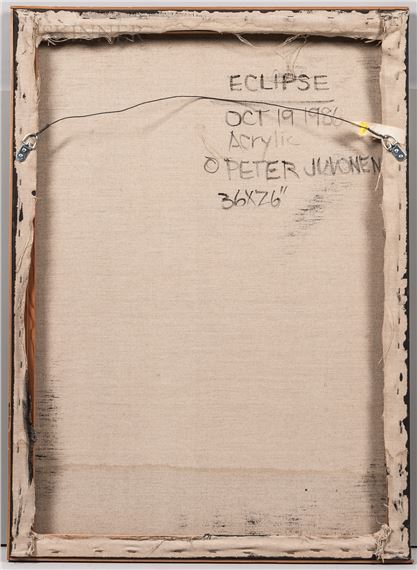 ECLIPSE
OCT 19 1986
Acrylic
© PETER JUVONEN
36X26"